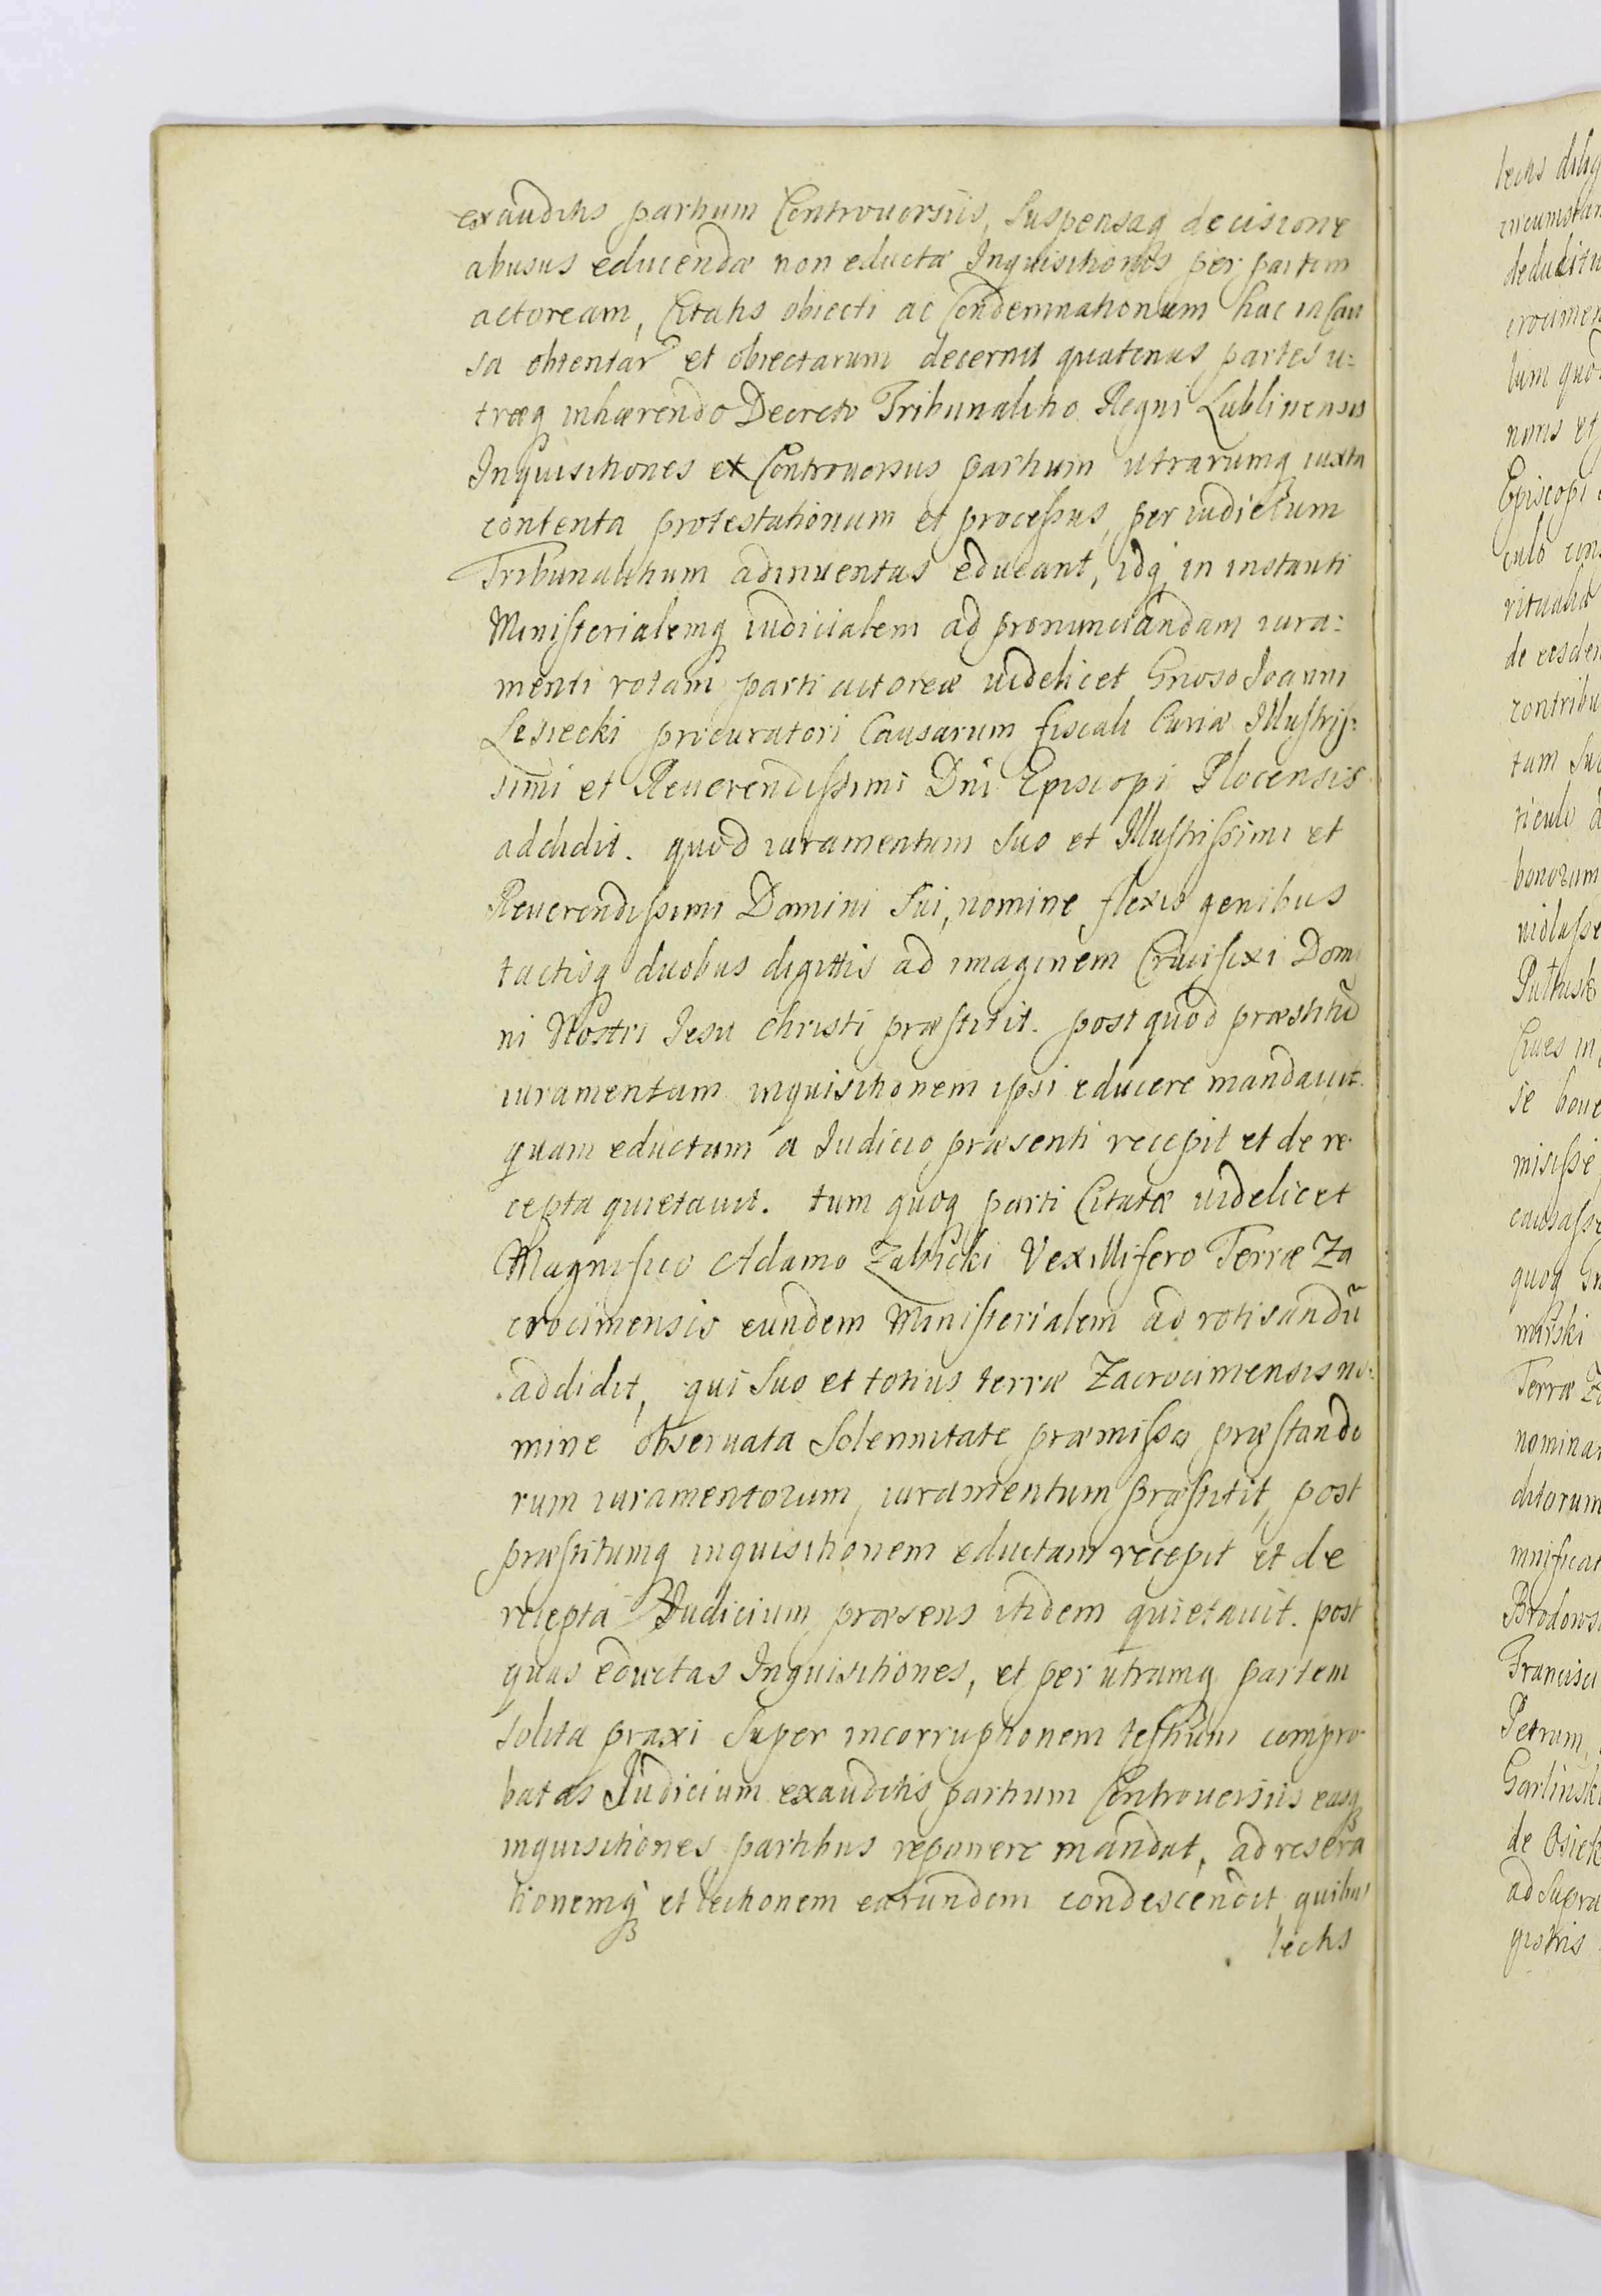 exauditis partium Controuersiis, Suspensaq decisione
abusus educendæ non eductæ Inquisitionis per partem
actoream, Citatis obiecti ac Condemnationum hac in Cau
sa obtentar et obiectarum decernit quatenus partes u:
træq inhærendo Decreto Tribunalitio Regni Lublinensis
Inquisitiones ex Controuersiis partium utrarumq iuxta
contenta protestationum et processus, per iudicium
Tribunalitium adinuentas educant, idq in instanti
Ministerialemq iudicialem ad pronunciandam iura:
menti rotam parti actoreæ uidelicet Gnoso Ioanni
Lesiecki procuratori Causarum fiscali Curiæ Illustris:
simi et Reuerendissimi Dni Episcopi Plocensis
addidit. quod iuramentum Suo et Illustrissimi et
Reuerendissimi Domini Sui, nomine flexis genibus
tactisq duobus digittis ad imaginem Crucifixi Domi
ni Nostri Iesu Christi præstitit. post quod præstitũ
iuramentum inquisitionem ipsi educere mandauit.
quam eductam a Iudicio præsenti recepit et de re
cepta quietauit. tum quoq parti Citatæ uidelicet
Magnifico Adamo Zabicki Vexillifero Terræ Za
crocimensis eundem Ministerialem ad rotisandũ
addidit, qui Suo et totius terræ Zacrocimensis no:
mine obseruata Solennitate præmissa præstando
rum iuramentorum, iuramentum præstitit, post
præstitumq inquisitionem eductam recepit et de
recepta Iudicium præsens itidem quietauit. post
quas eductas Inquisitiones, et per utramq partem
solita praxi Super incorruptionem testium compro
batas Iudicium exauditis partium Controuersiis easq
inquisitiones partibus reponere mandat, ad resera
tionemq et lectionem earundem condescendit quibus
lectis